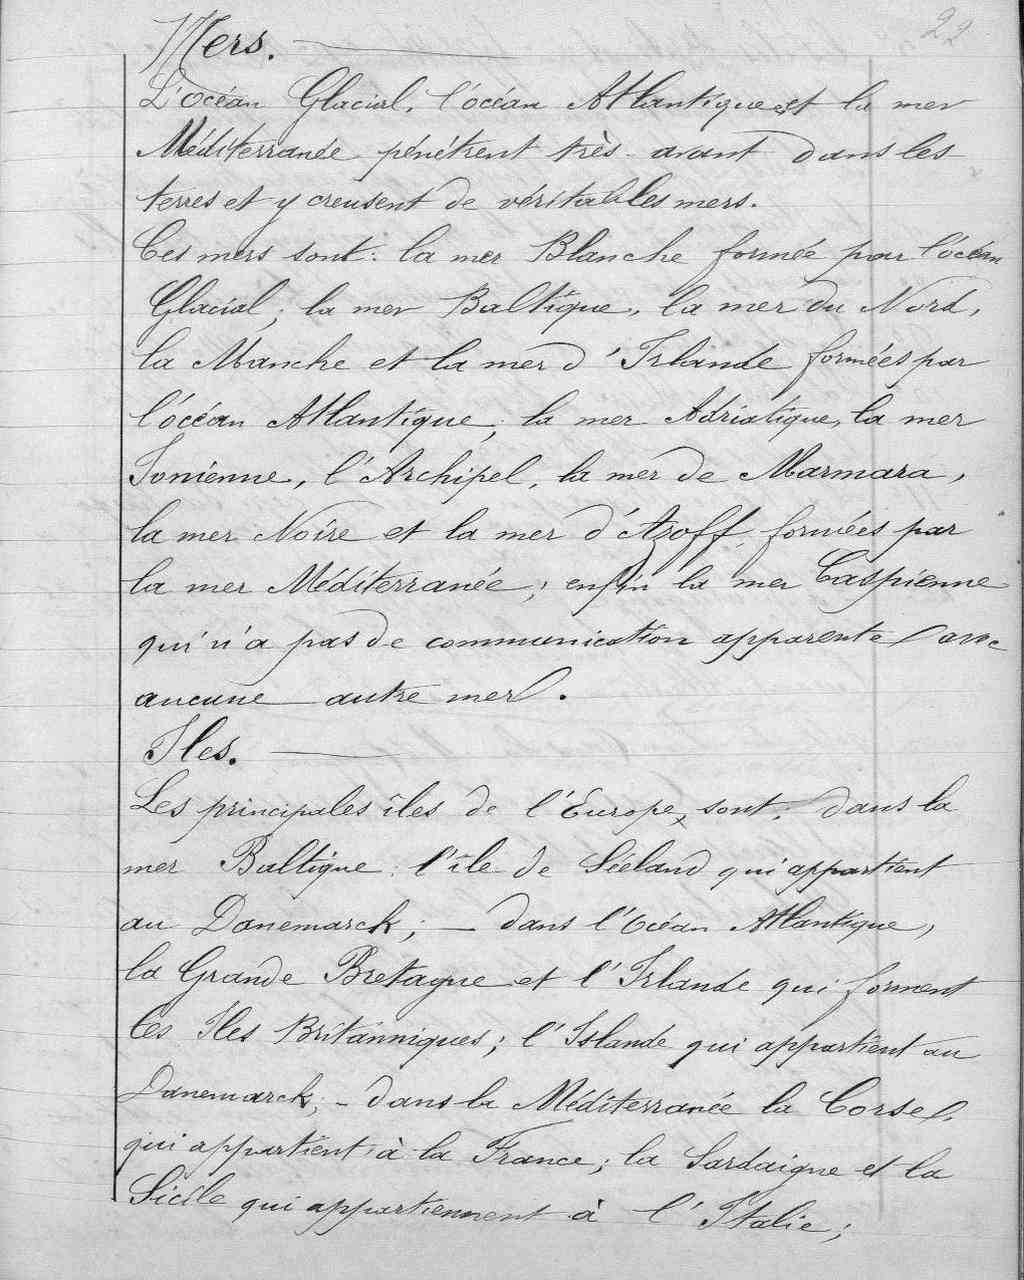 22
Mers.
L'océan Glacial, l'océan Atlantique et la mer
Méditerranée pénètrent très avant dans les
terres et y creusent de véritables mers.
Ces mers sont : la mer Blanche formée par l'océan
Glacial ; la mer Baltique, la mer du Nord,
la Manche et la mer d'Irlande formées par
l'océan Atlantique ; la mer Adriatique, la mer
Ionienne, l'Archipel, la mer de Marmara,
la mer Noire et la mer d'Azoff, formées par
la mer Méditerranée ; enfin la mer Caspienne
qui n'a pas de communication apparente avec
aucune autre mer.
Iles.
Les principales îles de l'Europe, sont : dans la
mer Baltique : l'île de Séeland qui appartient
au Danemarck ; — dans l'Océan Atlantique,
la Grande Bretagne et l'Irlande qui forment
les Iles Britanniques ; l'Islande qui appartient au
Danemarck ; – dans la Méditerranée la Corse,
qui appartient à la France ; la Sardaigne et la
Sicile qui appartiennent à l'Italie ;